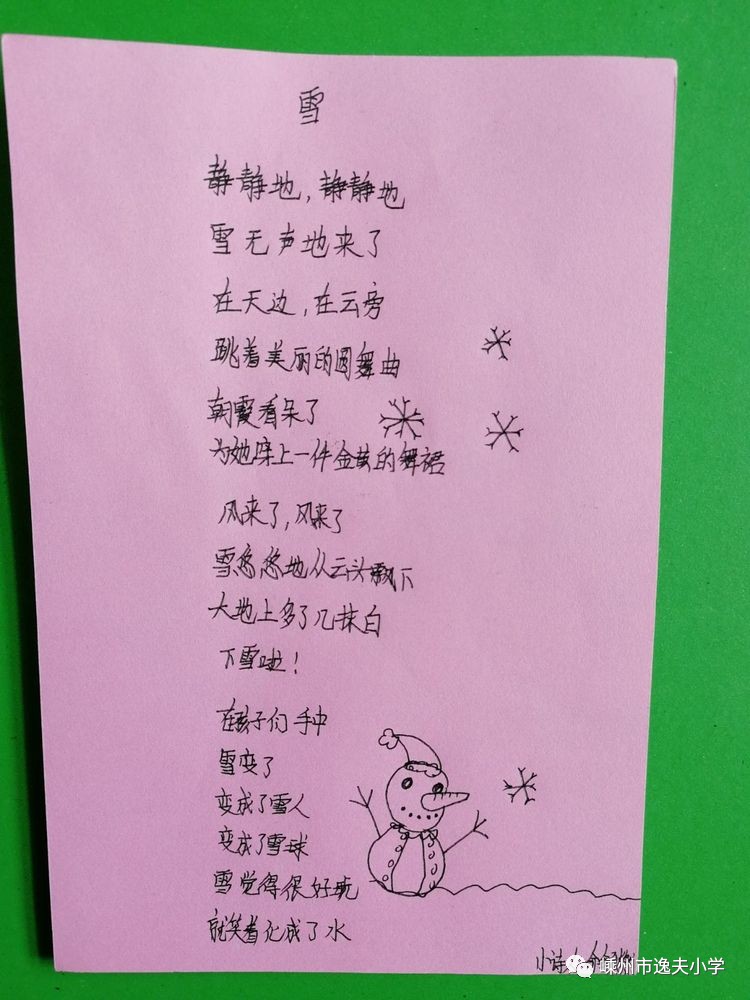 雪
静静地,静静地
雪无声地来了
在天边,在云旁
跳着美丽的圆舞曲
朝霞看呆了
为她染上一件金黄的舞裙
风来了,风来了
雪悠悠地从云头飘下
大地上多了几抹白
下雪啦!
在孩子们手中
雪变了
变成了雪人
变成了雪球
雪觉得很好玩
就笑着化成了水
小诗人
嵊州市逸夫小学